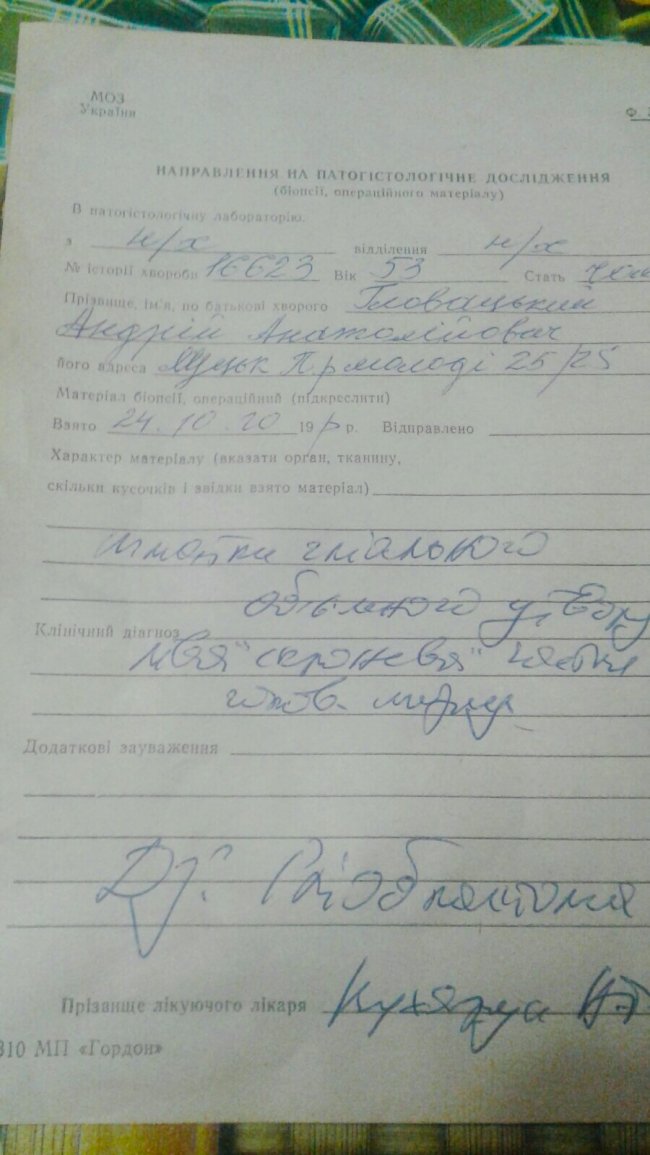 МОЗ
України
Ф.
НАПРАВЛЕННЯ НА ПАТОГІСТОЛОГІЧНЕ ДОСЛІДЖЕННЯ
(біопсії, операційного матеріалу)
В патогістологічну лабораторію.
з н/х відділення н/х
№ історії хвороби 16623 Вік 53 Стать чол
Прізвище, ім'я, по батькові хворого Гловацький
Андрій Анатолійович
його адреса Луцьк Пр молоді 25/25
Матеріал біопсії, операційний (підкреслити)
Взято 24.10.20 19 р р. Відправлено
Характер матеріалу (вказати орган, тканину,
скільки кусочків і звідки взято матеріал)
шматки гліального
об'ємного утвору
Клінічний діагноз
ліва скронева частка
голов. мозку
Додаткові зауваження
Ds: Гліобластома
Прізвище лікуючого лікаря
310 МП «Гордон»